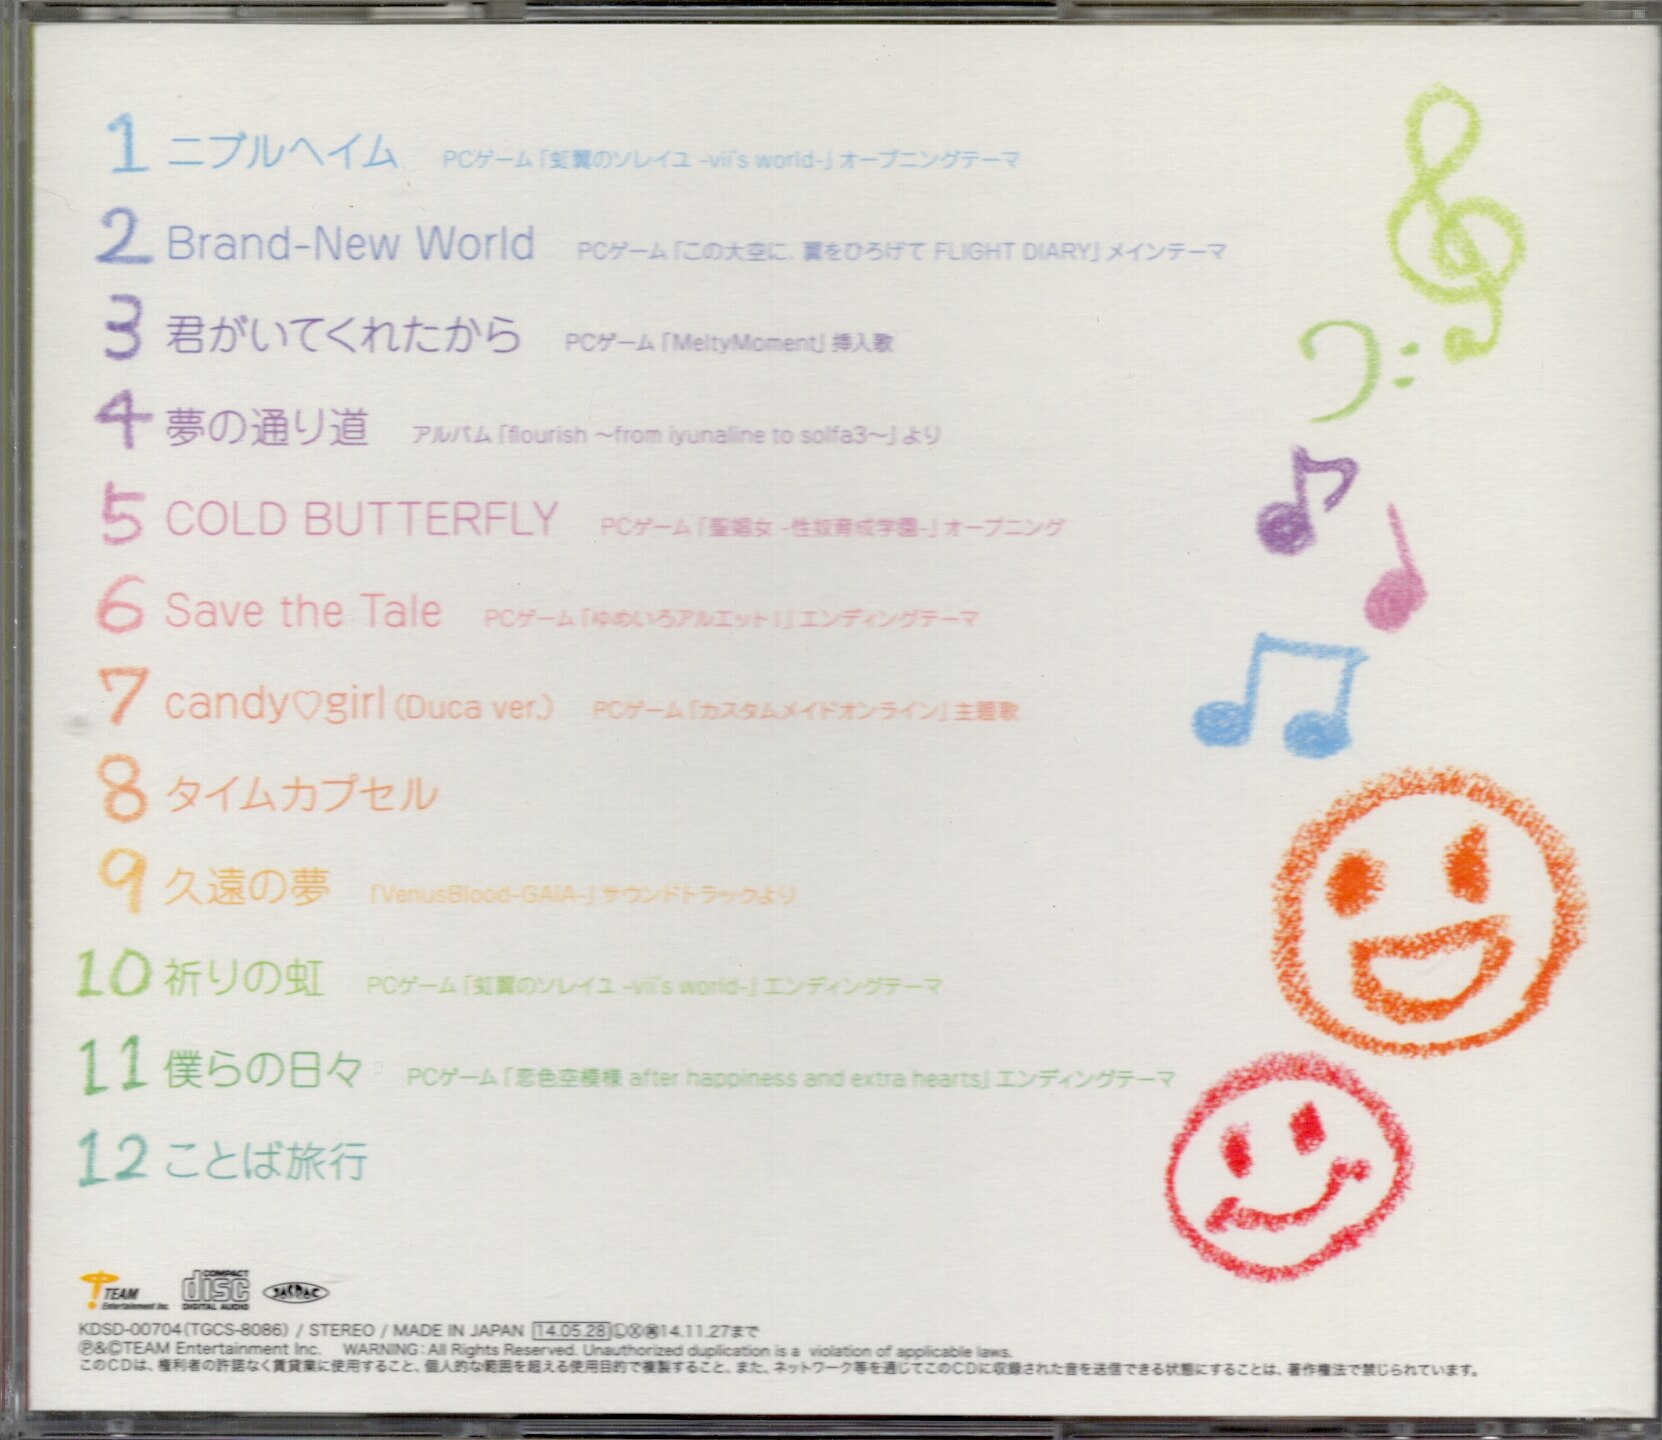 1 ニブルヘイム PCゲーム「虹翼のソレイユ -vii's world-」オープニングテーマ
2 Brand-New World PCゲーム「この大空に、翼をひろげて FLIGHT DIARY」メインテーマ
3 君がいてくれたから PCゲーム「MeltyMoment」挿入歌
4 夢の通り道 アルバム「flourish ～from iyunaline to solfa3～」より
5 COLD BUTTERFLY PCゲーム「聖娼女 -性奴育成学園-」オープニング
6 Save the Tale PCゲーム「ゆめいろアルエット!」エンディングテーマ
7 candy♡girl(Duca ver.) PCゲーム「カスタムメイドオンライン」主題歌
8 タイムカプセル
9 久遠の夢 「VenusBlood-GAIA-」サウンドトラックより
10 祈りの虹 PCゲーム「虹翼のソレイユ -vii's world-」エンディングテーマ
11 僕らの日々 PCゲーム「恋色空模様 after happiness and extra hearts」エンディングテーマ
12 ことば旅行
TEAM Entertainment Inc. COMPACT disc DIGITAL AUDIO JASRAC
KDSD-00704(TGCS-8086) / STEREO / MADE IN JAPAN 14.05.28 Ⓛ Ⓧ 14.11.27まで
Ⓟ&©TEAM Entertainment Inc. WARNING: All Rights Reserved. Unauthorized duplication is a violation of applicable laws.
このCDは、権利者の許諾なく賃貸業に使用すること、個人的な範囲を超える使用目的で複製すること、また、ネットワーク等を通じてこのCDに収録された音を送信できる状態にすることは、著作権法で禁じられています。